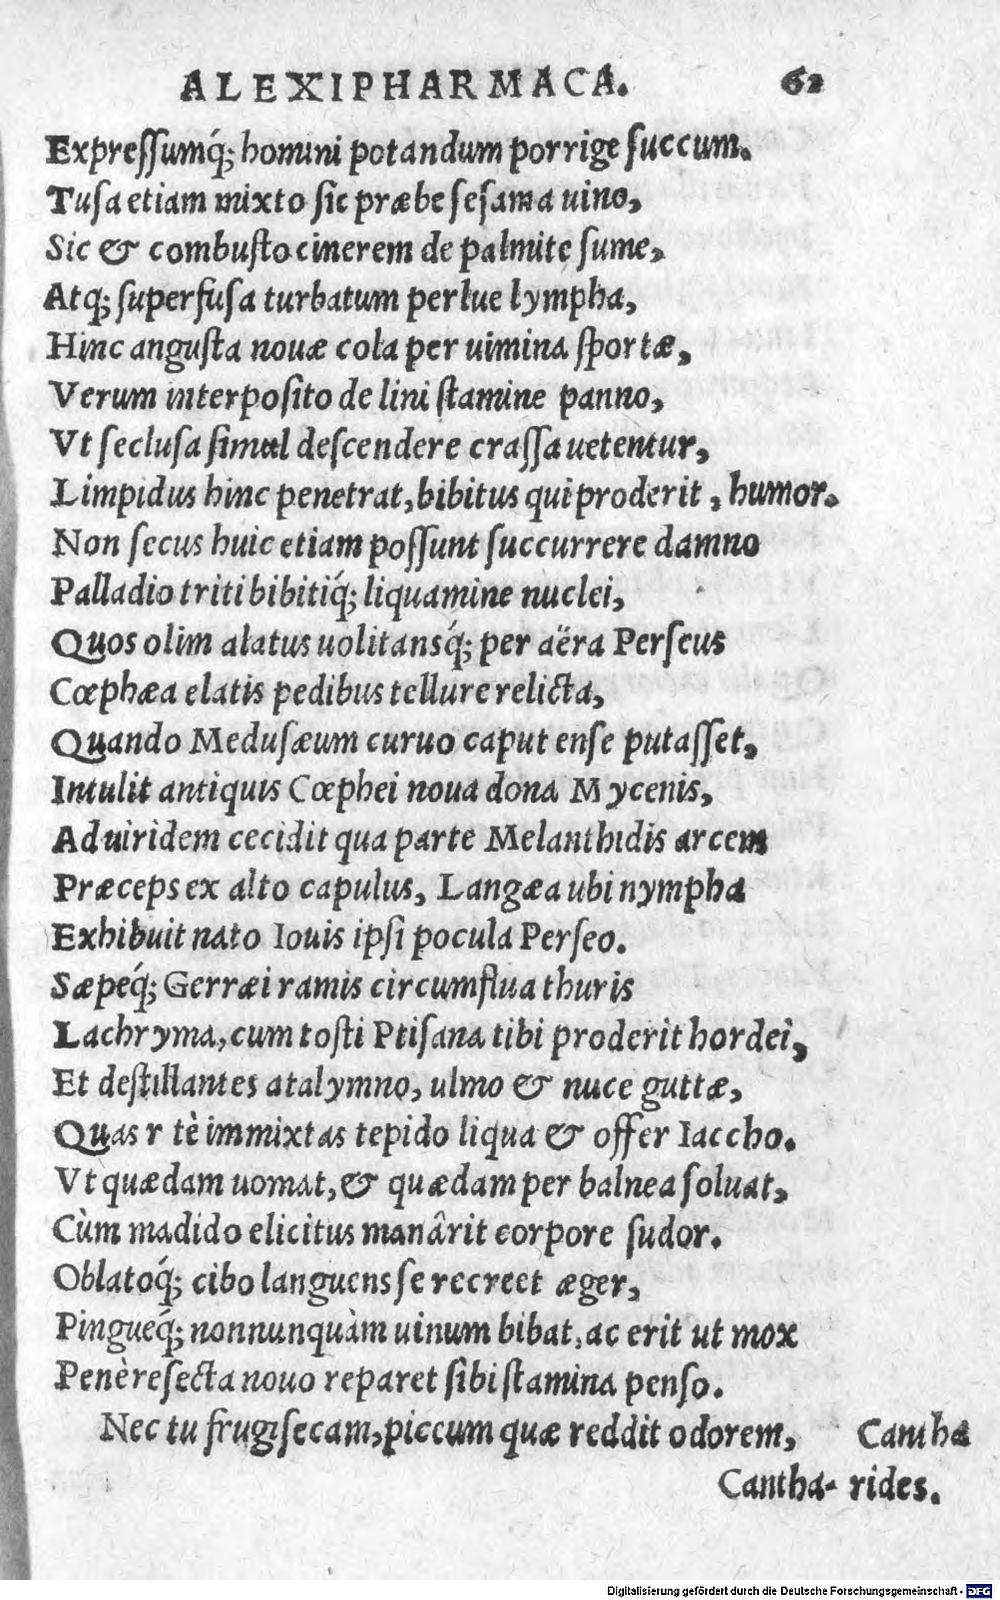 ALEXIPHARMACA. 62
Expreſſumq́; homini potandum porrige ſuccum.
Tuſa etiam mixto ſic præbe ſeſama uino,
Sic & combuſto cinerem de palmite ſume,
Atq; ſuperfuſa turbatum perlue lympha,
Hinc anguſta nouæ cola per uimina ſportæ,
Verum interpoſito de lini ſtamine panno,
Vt ſecluſa ſimul deſcendere craſſa uetentur,
Limpidus hinc penetrat, bibitus qui proderit, humor.
Non ſecus huic etiam poſſunt ſuccurrere damno
Palladio triti bibitiq́; liquamine nuclei,
Quos olim alatus uolitansq́; per aëra Perſeus
Cœphæa elatis pedibus tellure relicta,
Quando Meduſæum curuo caput enſe putaſſet,
Intulit antiquis Cœphei noua dona Mycenis,
Ad uiridem cecidit qua parte Melanthidis arcem
Præceps ex alto capulus, Langæa ubi nympha
Exhibuit nato Iouis ipſi pocula Perſeo.
Sæpeq́; Gerræi ramis circumflua thuris
Lachryma, cum toſti Ptiſana tibi proderit hordei,
Et deſtillantes atalymno, ulmo & nuce guttæ,
Quas r tè immixtas tepido liqua & offer Iaccho.
Vt quædam uomat, & quædam per balnea ſoluat,
Cùm madido elicitus manârit corpore ſudor.
Oblatoq́; cibo languens ſe recreet æger,
Pingueq́; nonnunquàm uinum bibat, ac erit ut mox
Penè reſecta nouo reparet ſibi ſtamina penſo.
Nec tu frugiſecam, piccum quæ reddit odorem, Cantha
Cantha- rides.
Digitalisierung gefördert durch die Deutsche Forschungsgemeinschaft - DFG